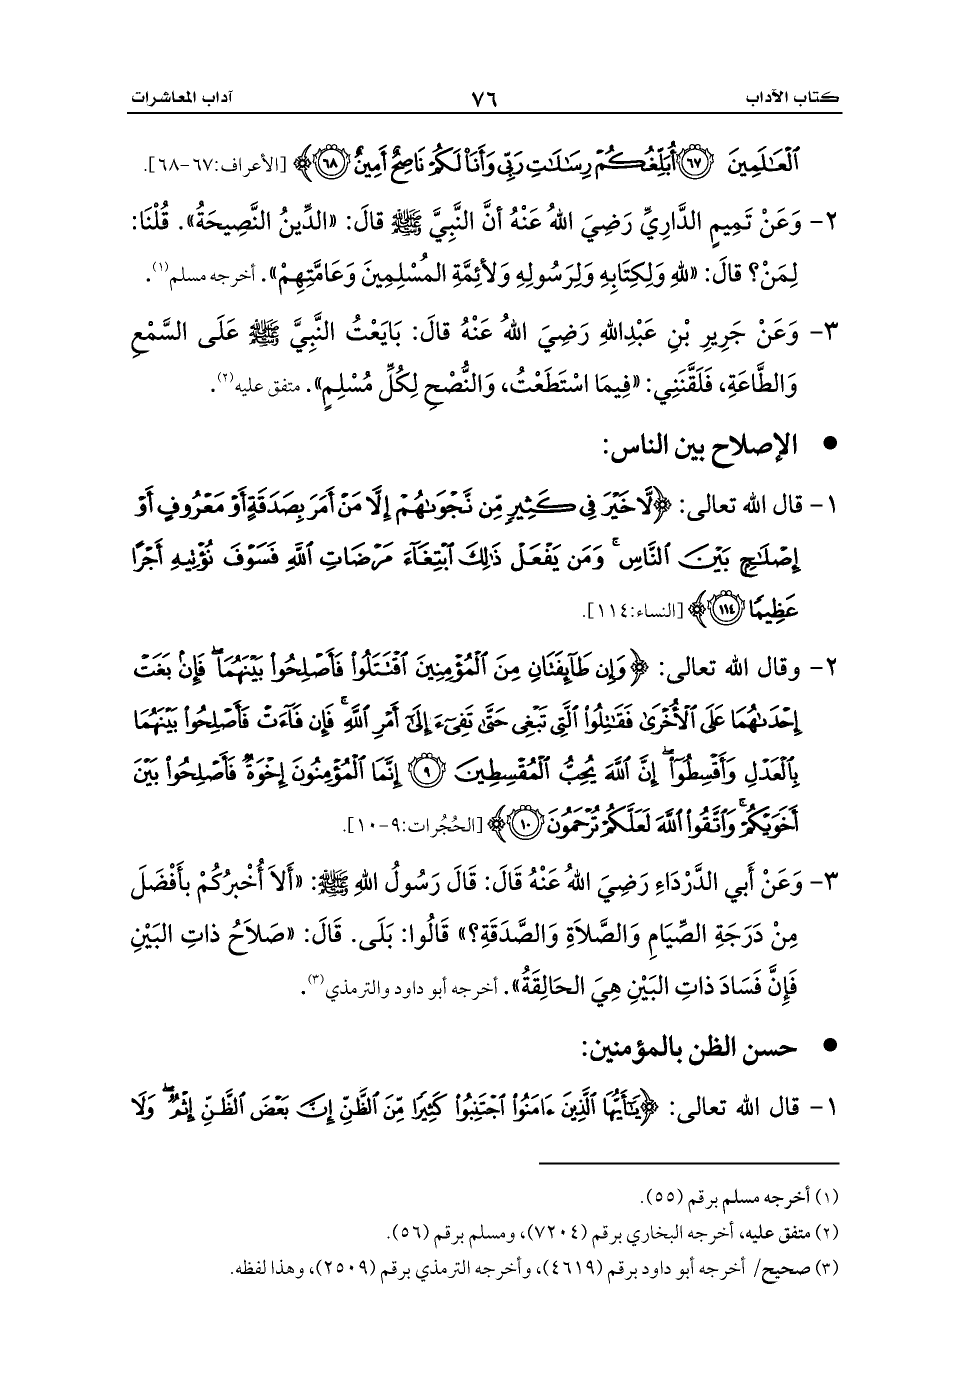 كتاب الآداب ٧٦ آداب المعاشرات
ٱلْعَـٰلَمِينَ ۝٦٧ أُبَلِّغُكُمْ رِسَـٰلَـٰتِ رَبِّى وَأَنَا۠ لَكُمْ نَاصِحٌ أَمِينٌ ۝٦٨﴾ [الأعراف:٦٧-٦٨].
٢- وَعَنْ تَمِيمٍ الدَّارِيِّ رَضِيَ اللهُ عَنْهُ أنَّ النَّبِيَّ ﷺ قالَ: «الدِّينُ النَّصِيحَةُ». قُلْنَا:
لِمَنْ؟ قالَ: «للهِ وَلِكِتَابِهِ وَلِرَسُولِهِ وَلأئِمَّةِ المُسْلِمِينَ وَعَامَّتِهِمْ». أخرجه مسلم(١).
٣- وَعَنْ جَرِيرِ بْنِ عَبْدِاللهِ رَضِيَ اللهُ عَنْهُ قالَ: بَايَعْتُ النَّبِيَّ ﷺ عَلَى السَّمْعِ
وَالطَّاعَةِ، فَلَقَّنَنِي: «فِيمَا اسْتَطَعْتُ، وَالنُّصْحِ لِكُلِّ مُسْلِمٍ». متفق عليه(٢).
● الإصلاح بين الناس:
١- قال الله تعالى: ﴿لَّا خَيْرَ فِى كَثِيرٍ مِّن نَّجْوَىٰهُمْ إِلَّا مَنْ أَمَرَ بِصَدَقَةٍ أَوْ مَعْرُوفٍ أَوْ
إِصْلَـٰحٍۭ بَيْنَ ٱلنَّاسِ ۚ وَمَن يَفْعَلْ ذَٰلِكَ ٱبْتِغَآءَ مَرْضَاتِ ٱللَّهِ فَسَوْفَ نُؤْتِيهِ أَجْرًا
عَظِيمًا ۝١١٤﴾ [النساء:١١٤].
٢- وقال الله تعالى: ﴿وَإِن طَآئِفَتَانِ مِنَ ٱلْمُؤْمِنِينَ ٱقْتَتَلُوا۟ فَأَصْلِحُوا۟ بَيْنَهُمَا ۖ فَإِنۢ بَغَتْ
إِحْدَىٰهُمَا عَلَى ٱلْأُخْرَىٰ فَقَـٰتِلُوا۟ ٱلَّتِى تَبْغِى حَتَّىٰ تَفِىٓءَ إِلَىٰٓ أَمْرِ ٱللَّهِ ۚ فَإِن فَآءَتْ فَأَصْلِحُوا۟ بَيْنَهُمَا
بِٱلْعَدْلِ وَأَقْسِطُوٓا۟ ۖ إِنَّ ٱللَّهَ يُحِبُّ ٱلْمُقْسِطِينَ ۝٩ إِنَّمَا ٱلْمُؤْمِنُونَ إِخْوَةٌ فَأَصْلِحُوا۟ بَيْنَ
أَخَوَيْكُمْ ۚ وَٱتَّقُوا۟ ٱللَّهَ لَعَلَّكُمْ تُرْحَمُونَ ۝١٠﴾ [الحُجُرات:٩-١٠].
٣- وَعَنْ أَبي الدَّرْدَاءِ رَضِيَ اللهُ عَنْهُ قَالَ: قَالَ رَسُولُ اللهِ ﷺ: «أَلاَ أُخْبِرُكُمْ بأَفْضَلَ
مِنْ دَرَجَةِ الصِّيَامِ وَالصَّلاَةِ وَالصَّدَقَةِ؟» قَالُوا: بَلَى. قَالَ: «صَلاَحُ ذاتِ البَيْنِ
فَإنَّ فَسَادَ ذاتِ البَيْنِ هِيَ الحَالِقَةُ». أخرجه أبو داود والترمذي(٣).
● حسن الظن بالمؤمنين:
١- قال الله تعالى: ﴿يَـٰٓأَيُّهَا ٱلَّذِينَ ءَامَنُوا۟ ٱجْتَنِبُوا۟ كَثِيرًا مِّنَ ٱلظَّنِّ إِنَّ بَعْضَ ٱلظَّنِّ إِثْمٌ ۖ وَلَا
(١) أخرجه مسلم برقم (٥٥).
(٢) متفق عليه، أخرجه البخاري برقم (٧٢٠٤)، ومسلم برقم (٥٦).
(٣) صحيح/ أخرجه أبو داود برقم (٤٦١٩)، وأخرجه الترمذي برقم (٢٥٠٩)، وهذا لفظه.